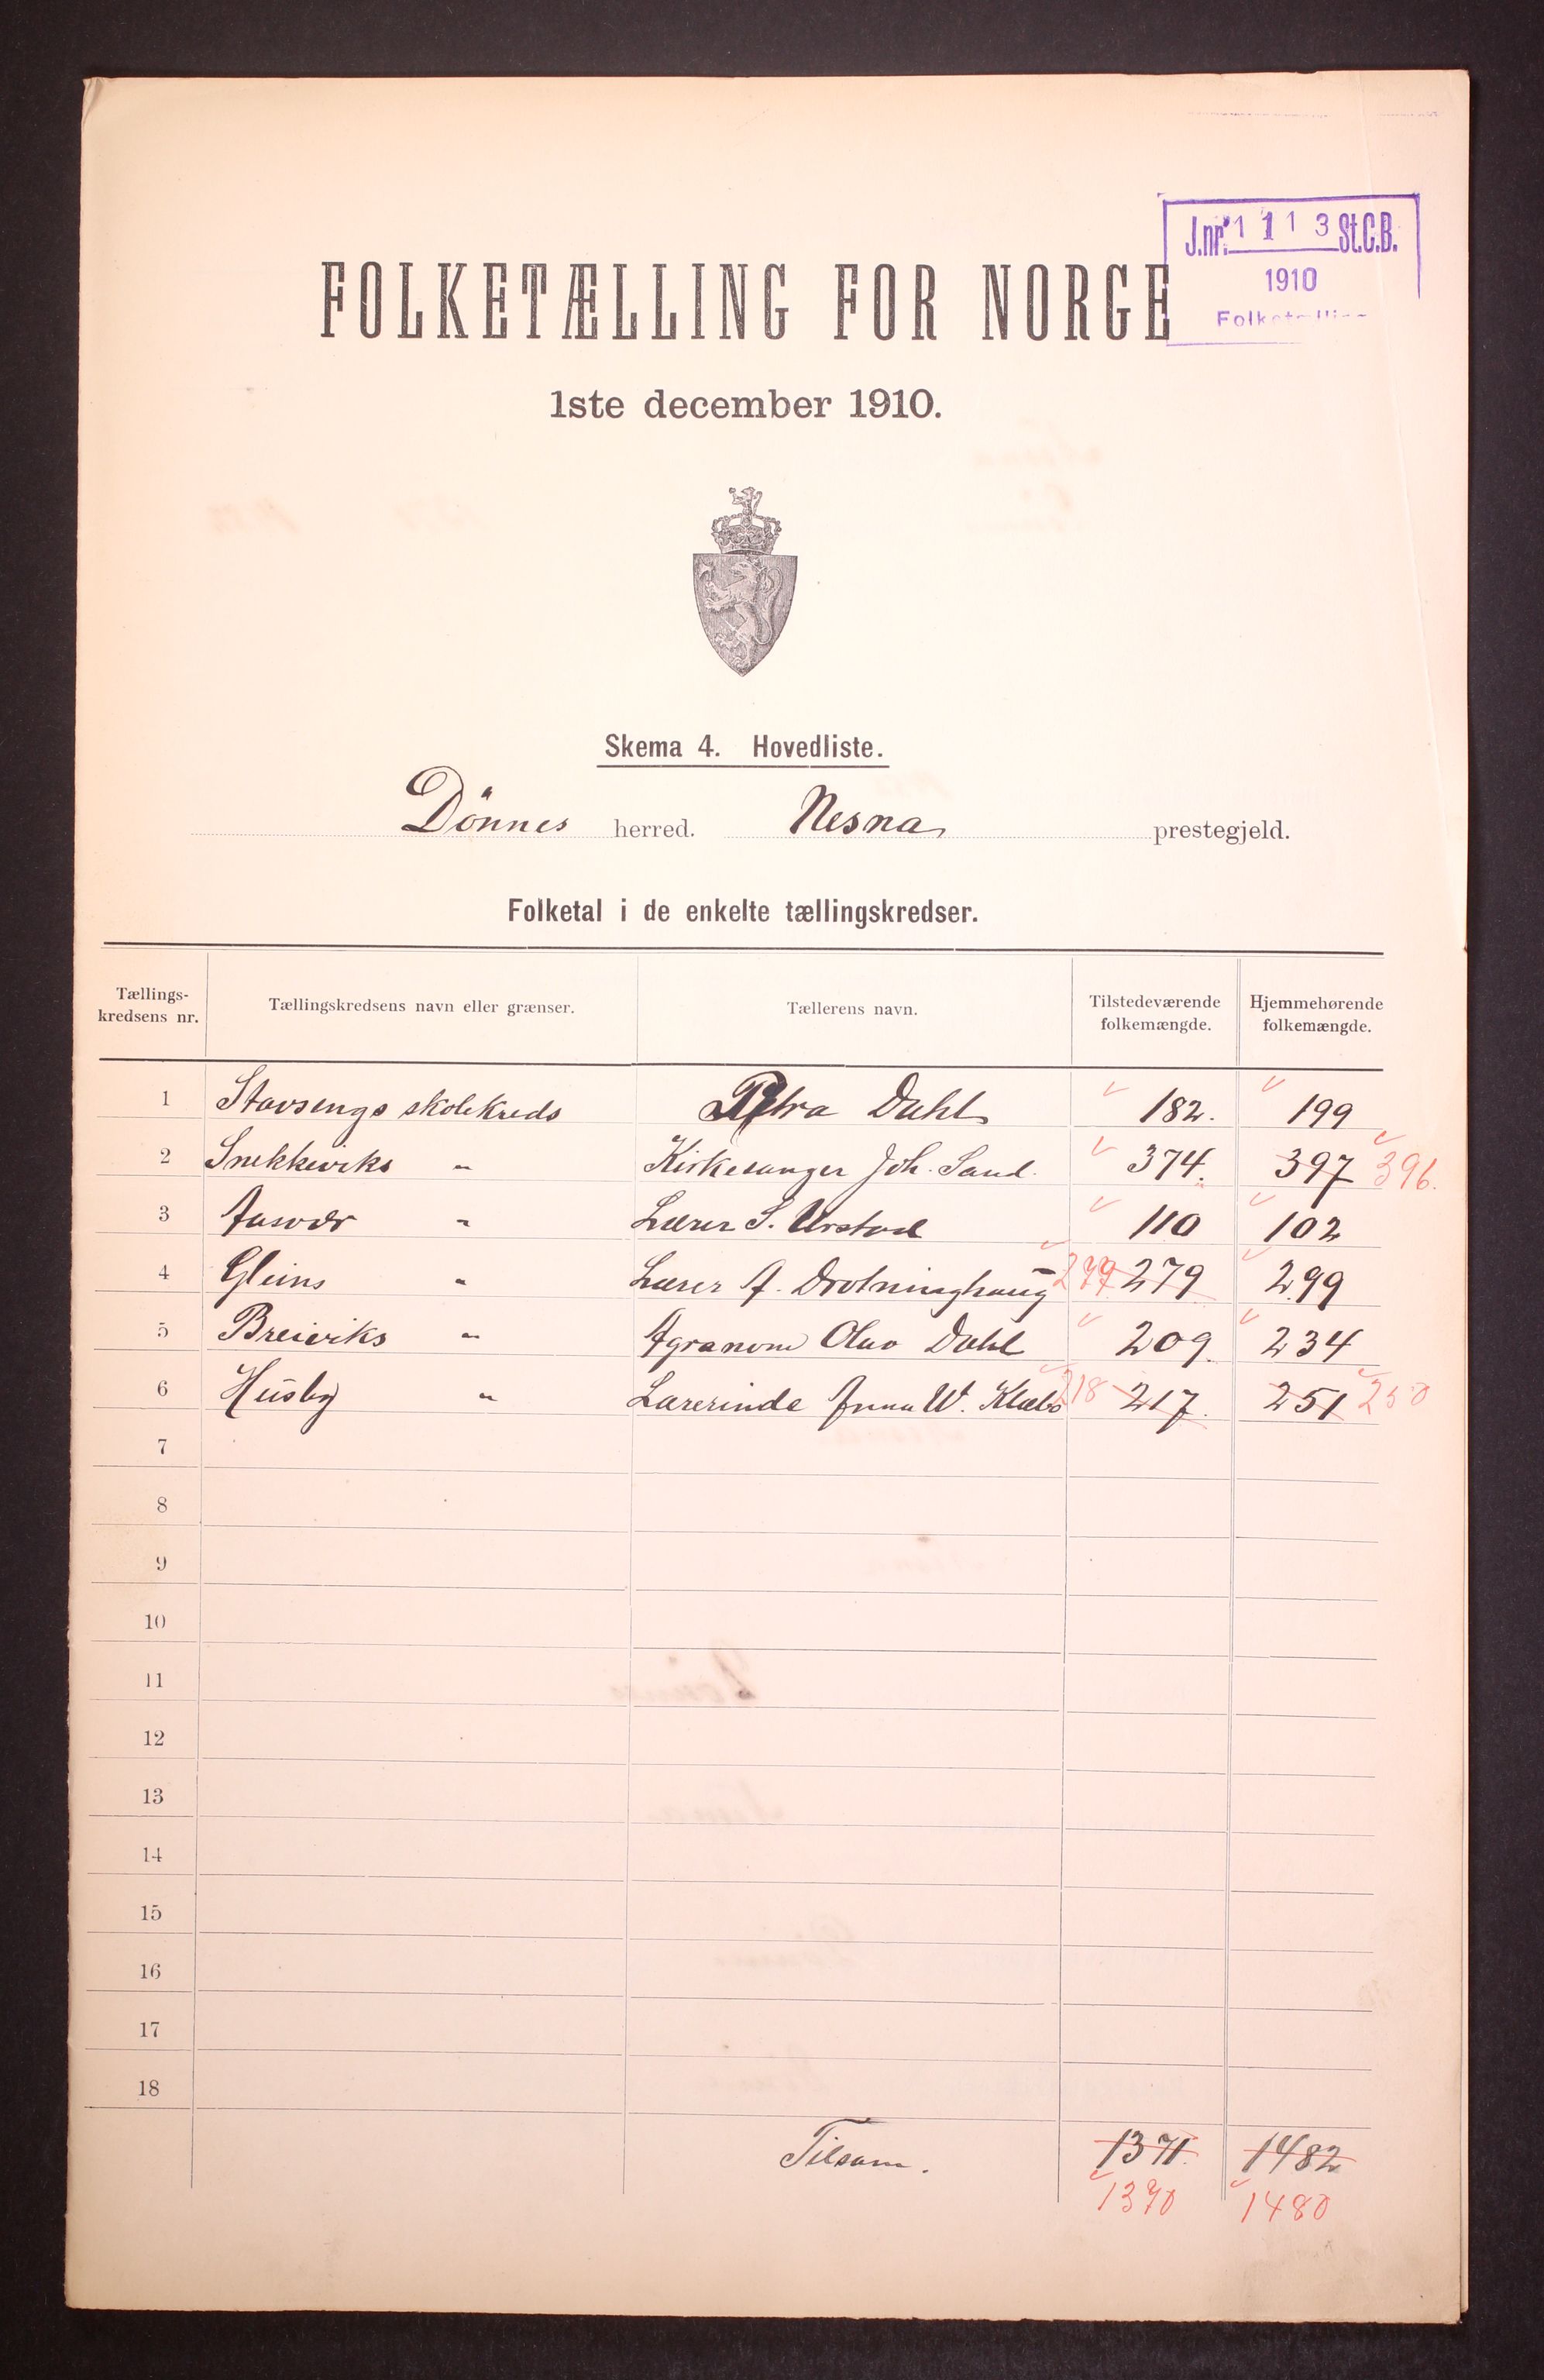 J.nr. 1113 St.C.B.
1910
Folketælling
FOLKETÆLLING FOR NORGE
1ste december 1910.
Skema 4. Hovedliste.
Dönnes herred. Nesna prestegjeld.
Folketal i de enkelte tællingskredser.
Tællings-kredsens nr. Tællingskredsens navn eller grænser. Tællerens navn. Tilstedeværende folkemængde. Hjemmehørende folkemængde.
1 Stavsengs skolekreds Petra Dahl 182. 199
2 Snekkeviks " Kirkesanger Joh. Sand. 374. 397 396.
3 Aasvær " Lærer S. Urstad 110 102
4 Gleins " Lærer A. Drotninghaug 277 279 299
5 Breiviks " Agronom Olav Dahl 209. 234
6 Husby " Lærerinde Anna W. Klæbo 218 217. 251 250
7
8
9
10
11
12
13
14
15
16
17
18
Tilsam. 1371. 1482
1370 1480